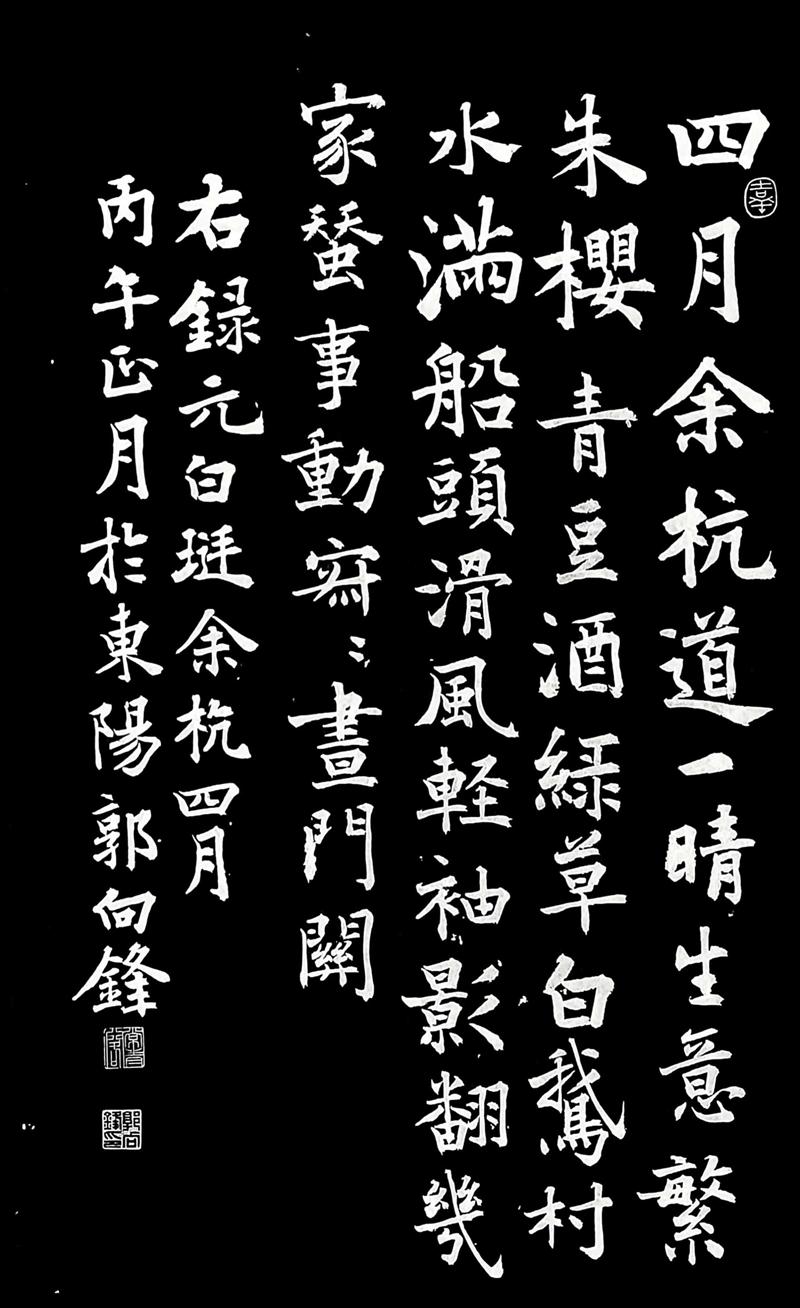 四月余杭道一晴生意繁
朱櫻青豆酒緑草白鵝村
水滿船頭滑風軽袖影翻幾
家蠶事動寂〻晝門關
右録元白珽余杭四月
丙午正月於東陽郭向鋒
郭向鋒印